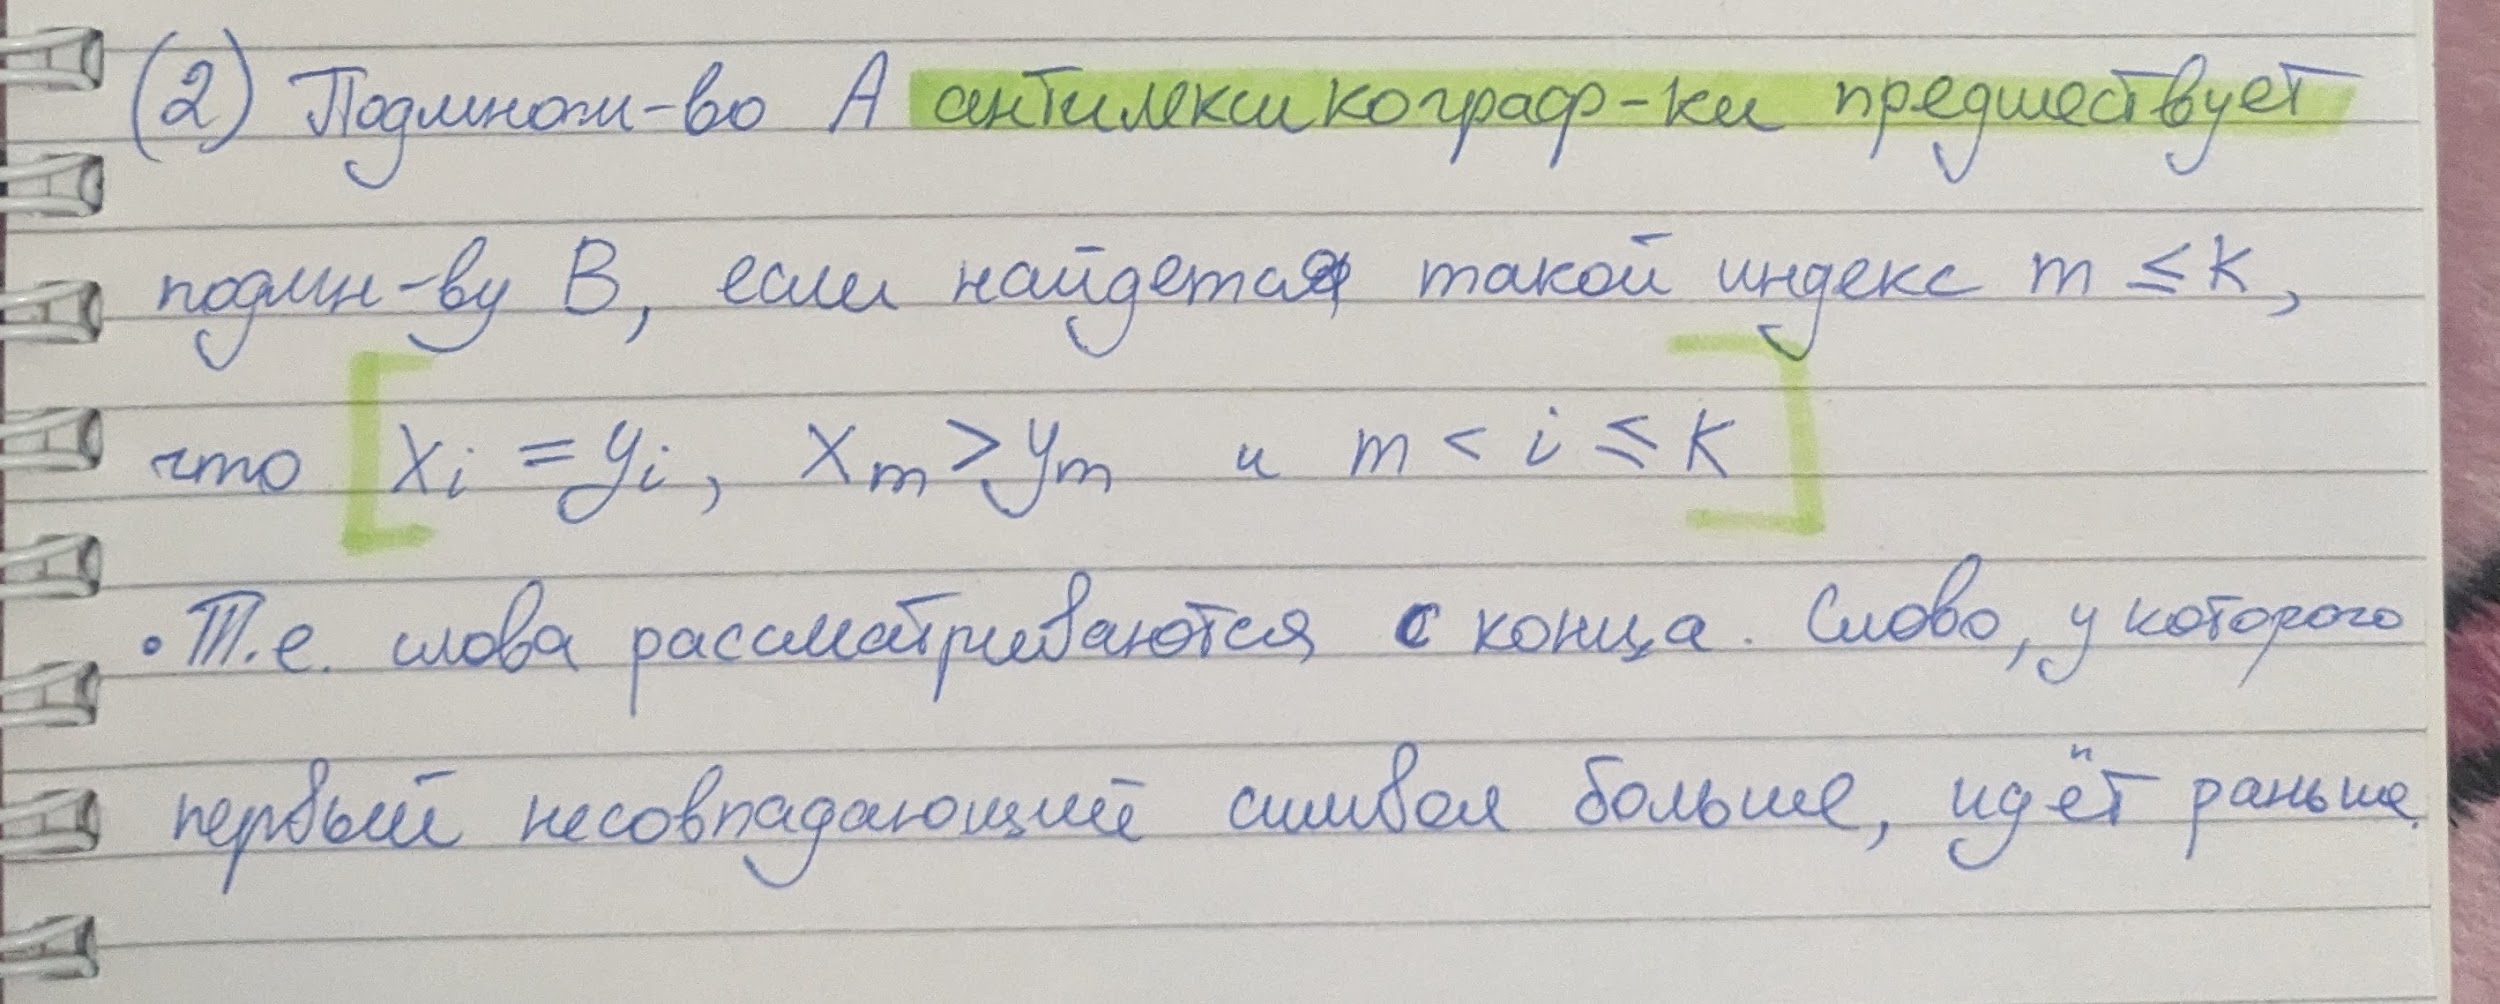 (2) Подмнож-во A антилексикограф-ки предшествует
подмн-ву B, если найдется такой индекс m ≤ k,
что [xi = yi, xm > ym и m < i ≤ k]
• Т.е. слова рассматриваются с конца. Слово, у которого
первый несовпадающий символ больше, идёт раньше.